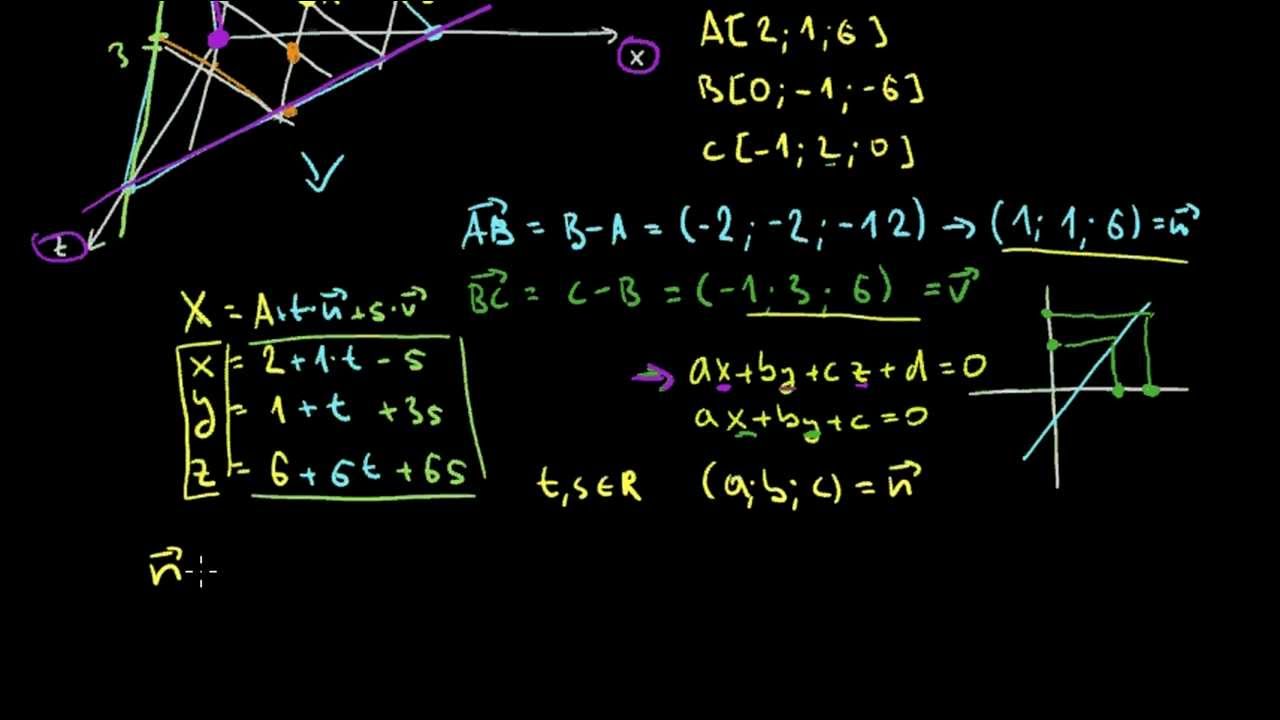 3
x
t
A[2; 1; 6]
B[0; -1; -6]
C[-1; 2; 0]
V
AB = B-A = (-2; -2; -12) → (1; 1; 6) = u
BC = C-B = (-1; 3; 6) = v
X = A+t·u+s·v
x = 2+1·t - s
y = 1+t +3s
z = 6+6t+6s
→ ax+by+cz+d=0
ax+by+c=0
t,s∈R (a; b; c) = n
n